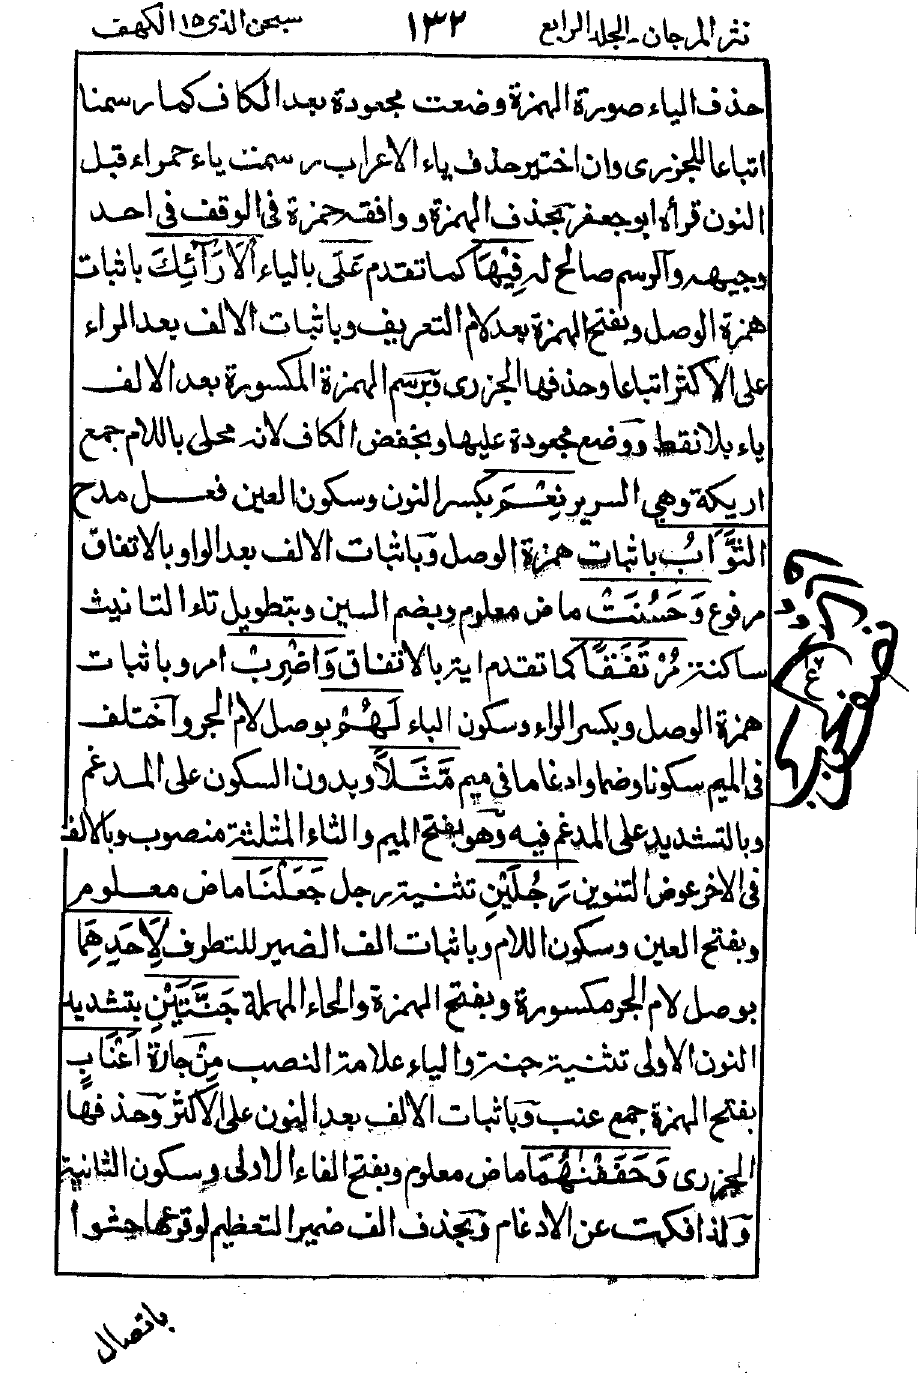 نثر المرجان ـ الجلد الرابع ١٣٢ سبحن الذى ١٥ الكهف
حذف الياء صورة الهمزة وضعت مجعودة بعد الكاف كما رسمنا
اتباعا للجزرى وان اختير حذف ياء الاعراب رسمت ياء حمراء قبل
النون قرأه ابو جعفر بحذف الهمزة ووافقه حمزة فى الوقف فى احد
وجيهه والرسم صالح له فِيْهَا كما تقدم عَلَى بالياء اَلْاَرَآئِكَ باثبات
همزة الوصل وبفتح الهمزة بعد لام التعريف وباثبات الالف بعد الراء
على الاكثر اتباعا وحذفها الجزرى وبرسم الهمزة المكسورة بعد الالف
ياء بلا نقط ووضع مجعودة عليها وبخفض الكاف لانه محلى باللام جمع
اريكة وهى السرير نِعْمَ بكسر النون وسكون العين فعل مدح
الثَّوَابُ باثبات همزة الوصل وباثبات الالف بعد الواو بالاتفاق
مرفوع وَحَسُنَتْ ماض معلوم وبضم السين وبتطويل تاء التانيث
ساكنة مُرْتَفَقًا كما تقدم اية بالاتفاق وَاضْرِبْ امر وباثبات
همزة الوصل وبكسر الراء وسكون الباء لَهُمْ بوصل لام الجر واختلف
فى الميم سكونا وضما وادغاما فى ميم مَّثَلًا وبدون السكون على المدغم
وبالتشديد على المدغم فيه وهو بفتح الميم والثاء المثلثة منصوب وبالالف
فى الاخر عوض التنوين رَجُلَيْنِ تثنية رجل جَعَلْنَا ماض معلوم
وبفتح العين وسكون اللام وباثبات الف الضمير للتطرف لِاَحَدِهِمَا
بوصل لام الجر مكسورة وبفتح الهمزة والحاء المهملة جَنَّتَيْنِ بتشديد
النون الاولى تثنية جنة والياء علامة النصب مِنْ جارة اَعْنَابٍ
بفتح الهمزة جمع عنب وباثبات الالف بعد النون على الاكثر وحذفها
الجزرى وَحَفَفْنٰهُمَا ماض معلوم وبفتح الفاء الاولى وسكون الثانية
ولذا فكت عن الادغام وبحذف الف ضمير التعظيم لوقوعها حشوا
باتصال